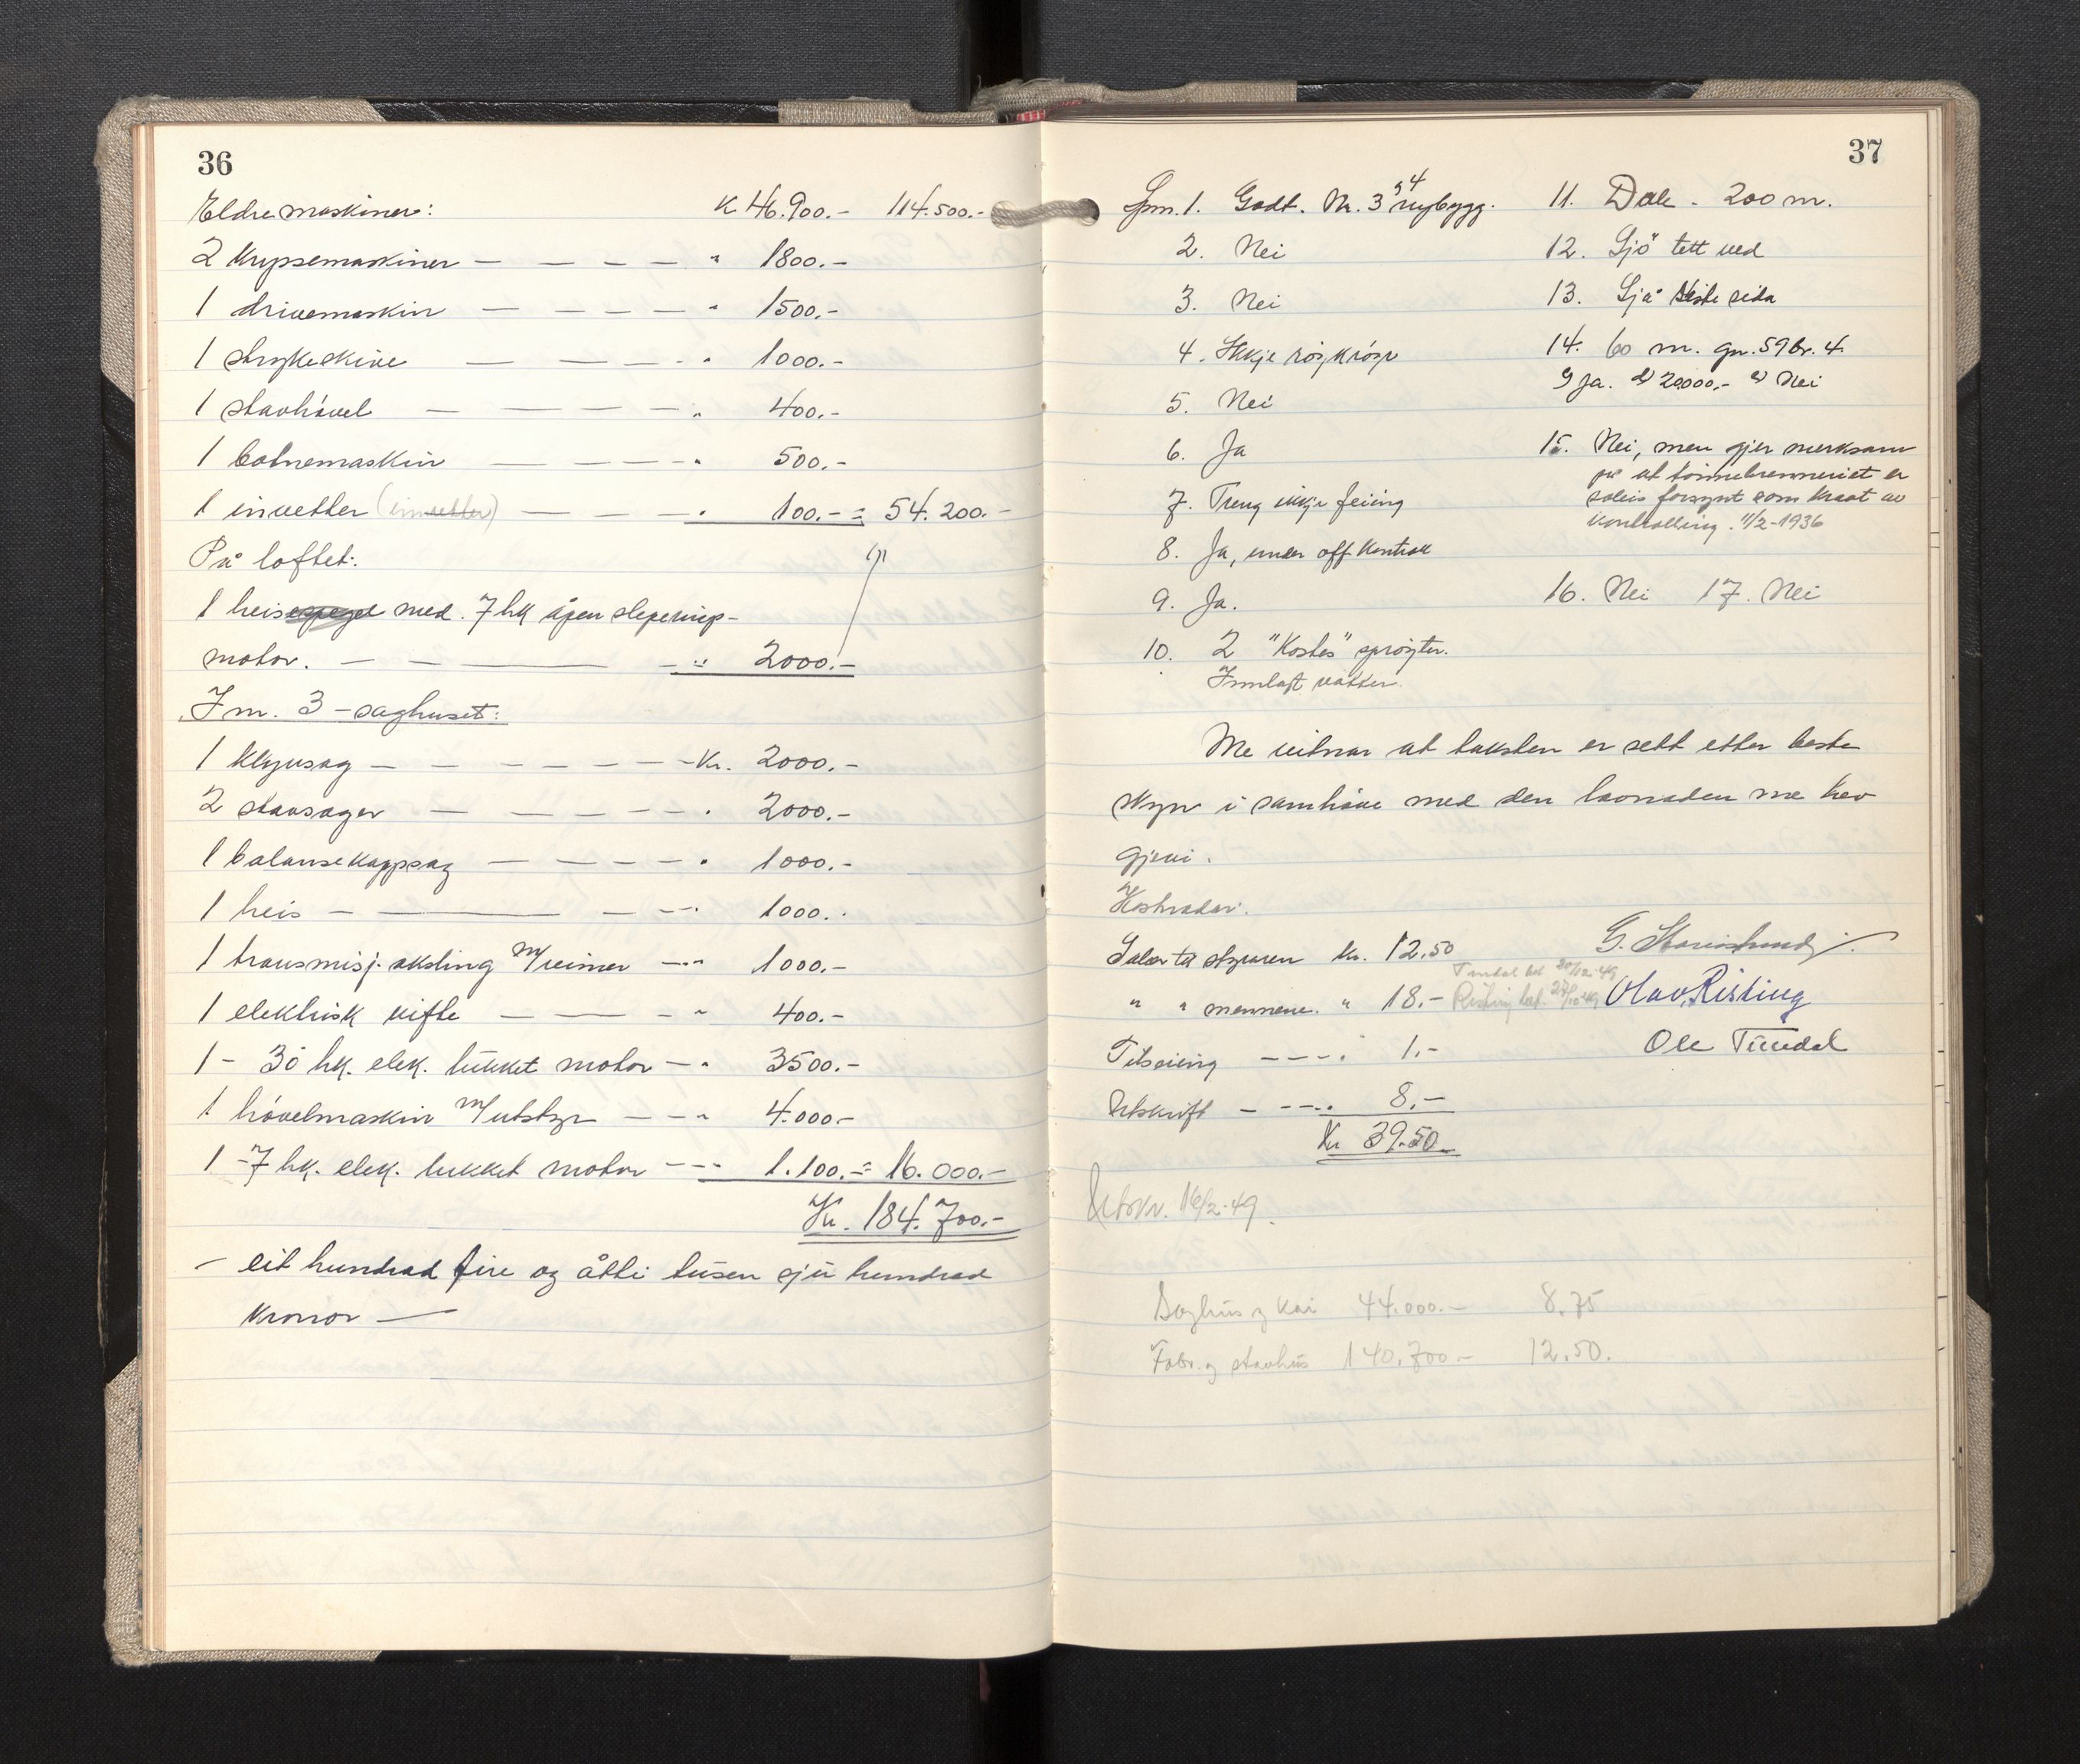 36
Eldre maskiner: K 46.900.- 114.500.-
2 krypsemaskiner — — — — " 1800.-
1 drivemaskin — — — — " 1500.-
1 strykeskive — — — — " 1000.-
1 stavhövel — — — — " 400.-
1 botnemaskin — — — — " 500.-
1 invetter (invetter) — — — " 100.- = 54.200.-
På loftet:
1 heis med. 7 hk åpen sleperings-
motor. — — — — " 2000.-
I m. 3 - saghuset:
1 klyvsag — — — — — Kr. 2000.-
2 stavsager — — — — — " 2000.-
1 balansekappsag — — — — " 1000.-
1 heis — — — — " 1000.-
1 transmisj. aksling m/reimer — " 1000.-
1 elektrisk vifte — — — " 400.-
1 - 30 hk. elek. lukket motor — " 3500.-
1 hövelmaskin m/utstyr — — " 4.000.-
1 - 7 hk. elek. lukket motor — — 1.100.- = 16.000.-
Kr. 184.700.-
— eit hundrad fire og åtti tusen sju hundrad
kronor —
37
Spm. 1. Godt. Nr. 3 54 nybygg.
2. Nei
3. Nei
4. Ikkje
5. Nei
6. Ja
7. Treng ikkje feiing
8. Ja, under off. kontrol
9. Ja.
10. 2 "Kostes" spröyter.
Innlagt vatten.
11. Dale - 200 m.
12. Sjö tett ved
13. Sjå siste sida
14. 60 m. gn. 59 br. 4.
Ja. d) 20.000,- e) Nei
15. Nei, men gjer merksam
på at tönnebrenneriet er
soleis forsynt som kravt av
kontrolling. 11/2-1936
16. Nei 17. Nei
Me vitnar at taksten er sett etter beste
skyn i samhöve med den lovnaden me hev
gjevi.
Kostnader.
Salær til styraren kr. 12.50
" " mennene. " 18.-
Tilseiing — — — " 1.-
Utskrift — — — " 8.-
Kr 39.50
Tundal bet 20/12-49
Risting bet. 27/12-49
Olav Risting
Ole Tundal
Utskr. 16/2-49.
Saghus og kai 44.000.- 8.75
Fabr. og stavhus 140.700.- 12.50.